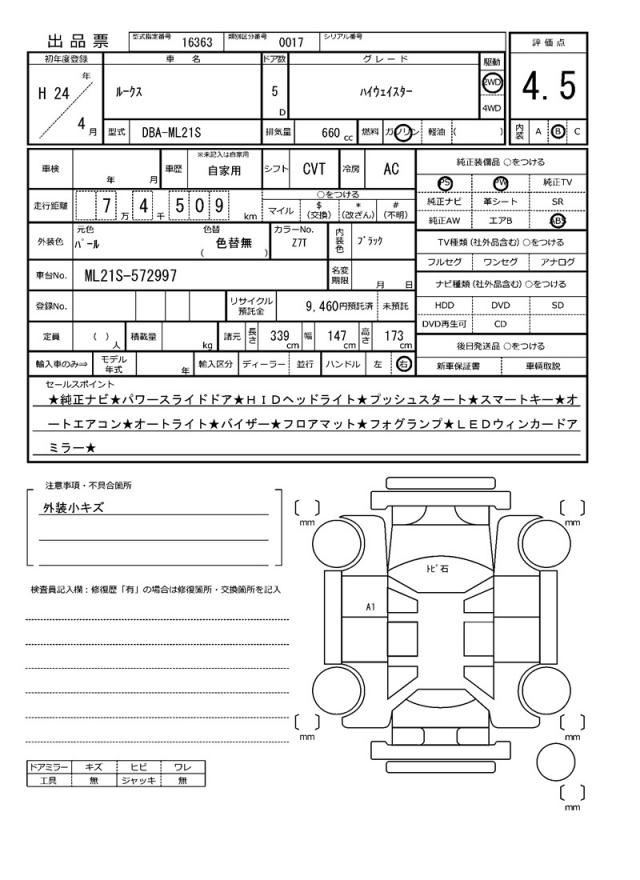 出品票 型式指定番号 16363 類別区分番号 0017 シリアル番号
評価点
4.5
内装 A B C
初年度登録 車名 ドア数 グレード 駆動
H 24 年 4 月 ルークス 5 D ハイウェイスター 2WD 4WD
型式 DBA-ML21S 排気量 660 cc 燃料 ガソリン 軽油 ( )
車検 年 月 車歴 ※未記入は自家用 自家用 シフト CVT 冷房 AC
走行距離 7 万 4 千 5 0 9 km ○をつける マイル $ (交換) * (改ざん) # (不明)
外装色 元色 パール 色替 色替無 ( ) カラーNo. Z7T 内装色 ブラック
車台No. ML21S-572997 名変期限 月 日
登録No. リサイクル預託金 9,460円預託済 未預託
定員 ( ) 人 積載量 kg 諸元 長さ 339 cm 幅 147 cm 高さ 173 cm
輸入車のみ⇒ モデル年式 年 輸入区分 ディーラー 並行 ハンドル 左 右
純正装備品 ○をつける
PS PW 純正TV
純正ナビ 革シート SR
純正AW エアB ABS
TV種類 (社外品含む) ○をつける
フルセグ ワンセグ アナログ
ナビ種類 (社外品含む) ○をつける
HDD DVD SD
DVD再生可 CD
後日発送品 ○をつける
新車保証書 車輌取説
セールスポイント
★純正ナビ★パワースライドドア★HIDヘッドライト★プッシュスタート★スマートキー★オ
ートエアコン★オートライト★バイザー★フロアマット★フォグランプ★LEDウィンカードア
ミラー★
注意事項・不具合箇所
外装小キズ
検査員記入欄：修復歴「有」の場合は修復箇所・交換箇所を記入
ドアミラー キズ ヒビ ワレ
工具 無 ジャッキ 無
〔 〕 mm 〔 〕 mm
トビ石
A1
〔 〕 mm 〔 〕 mm
〔 〕 mm